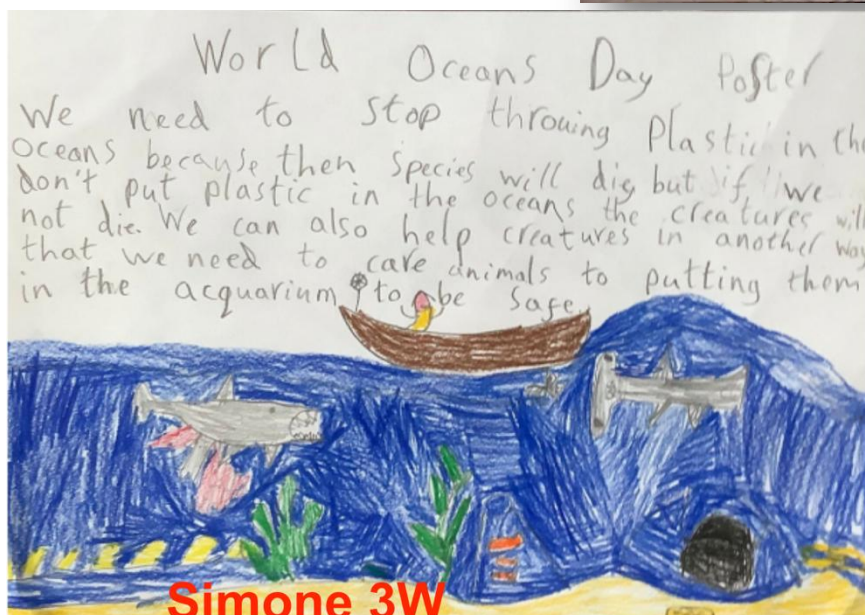 World Oceans Day Poster
We need to stop throwing Plastic in the
oceans because then species will die but if we
don't put plastic in the oceans the creatures will
not die. We can also help creatures in another way
that we need to care animals to putting them
in the acquarium to be safe
Simone 3W